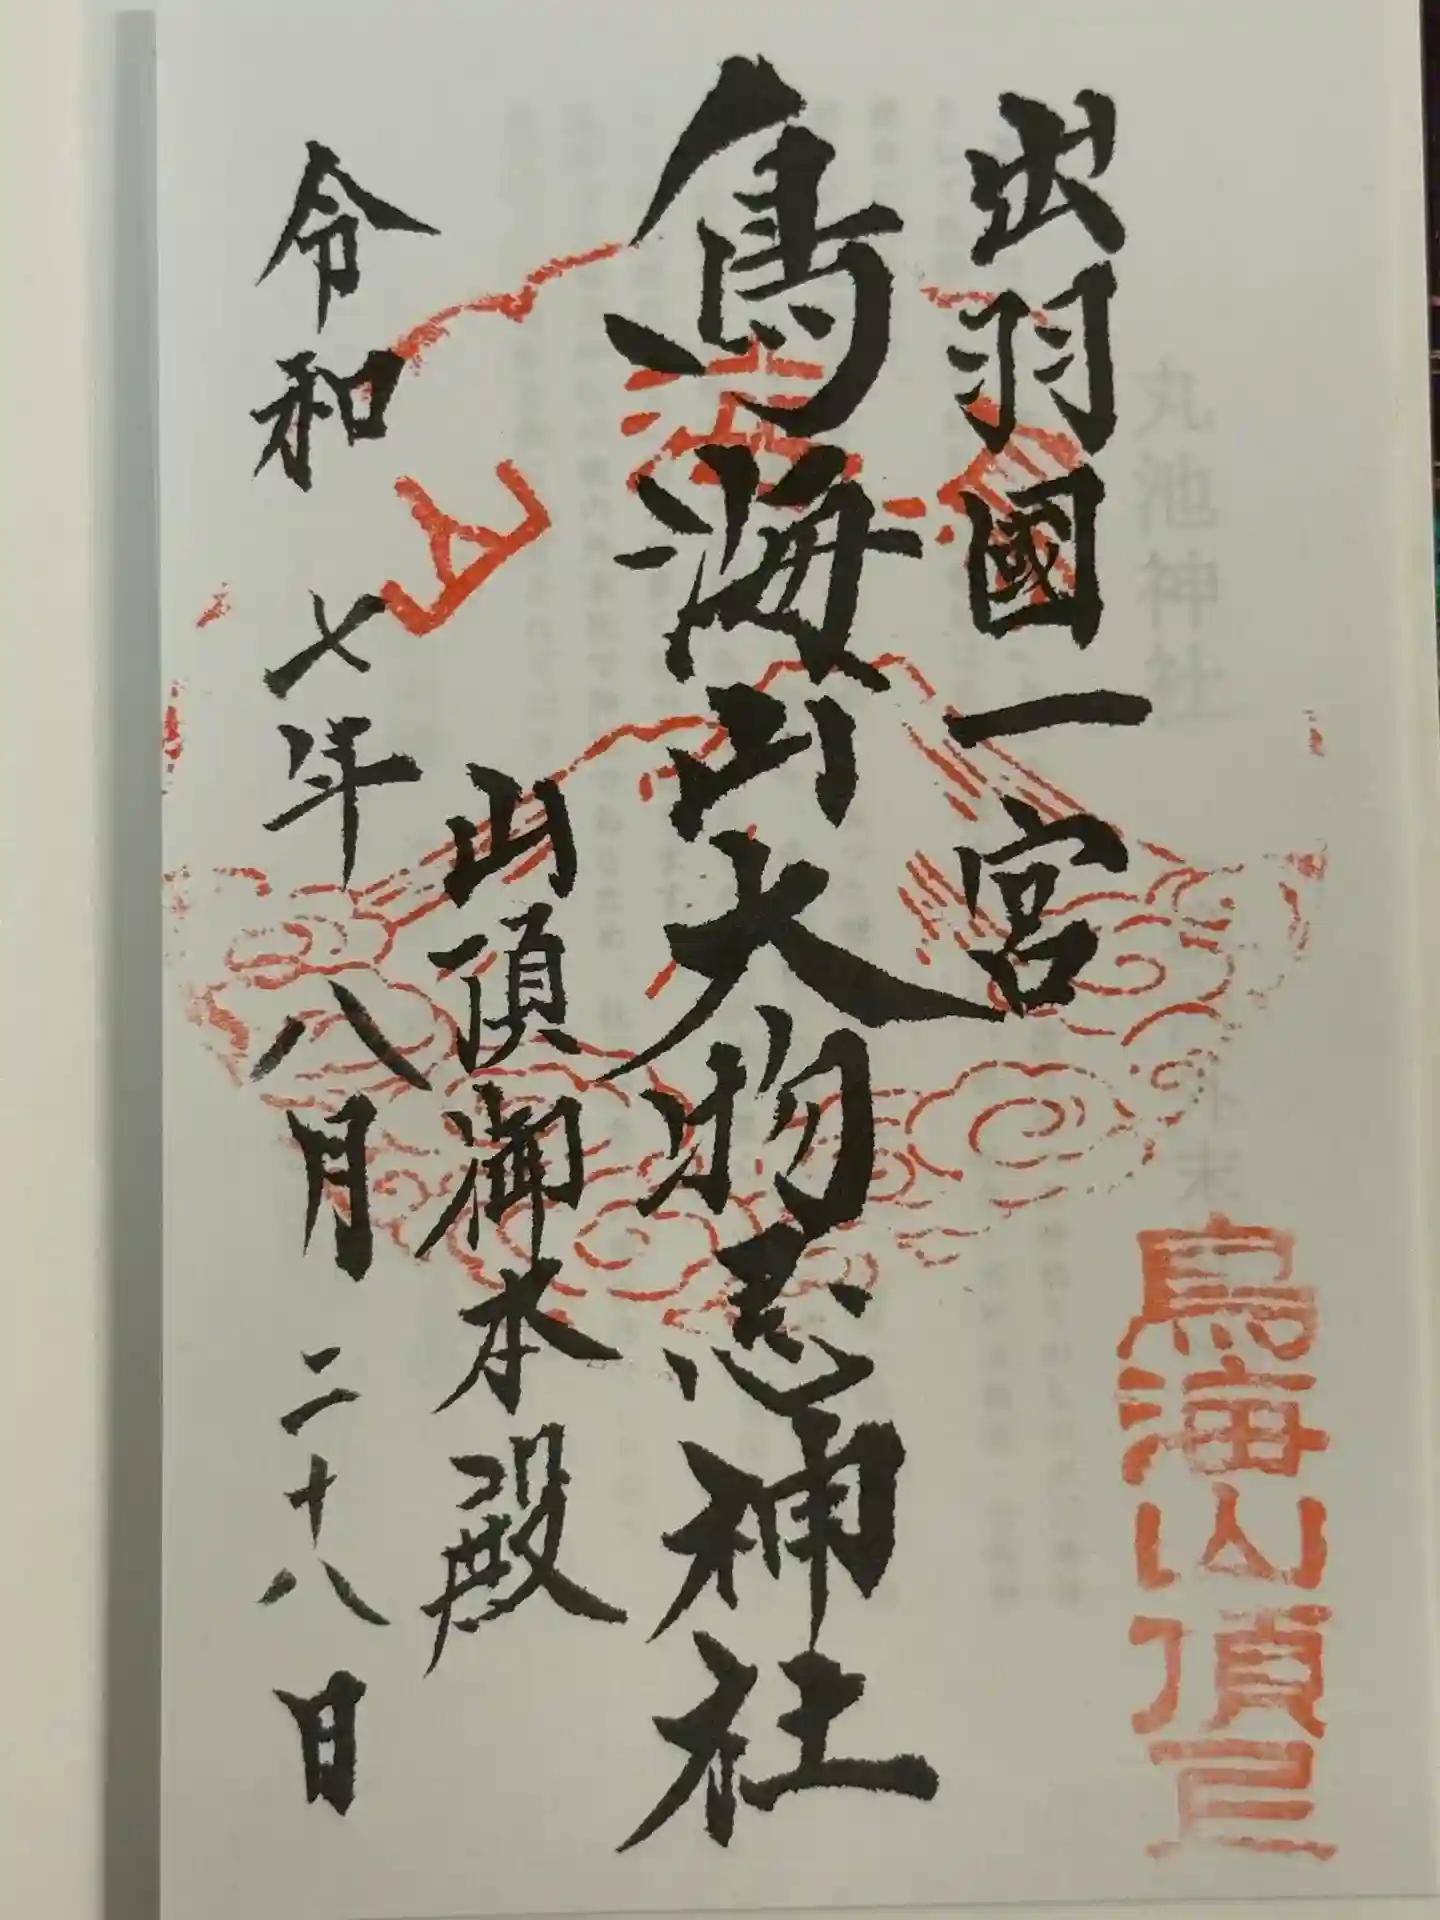 出羽國一宮
鳥海山大物忌神社
山頂御本殿
令和七年八月二十八日
鳥海山
鳥海山頂
丸池神社